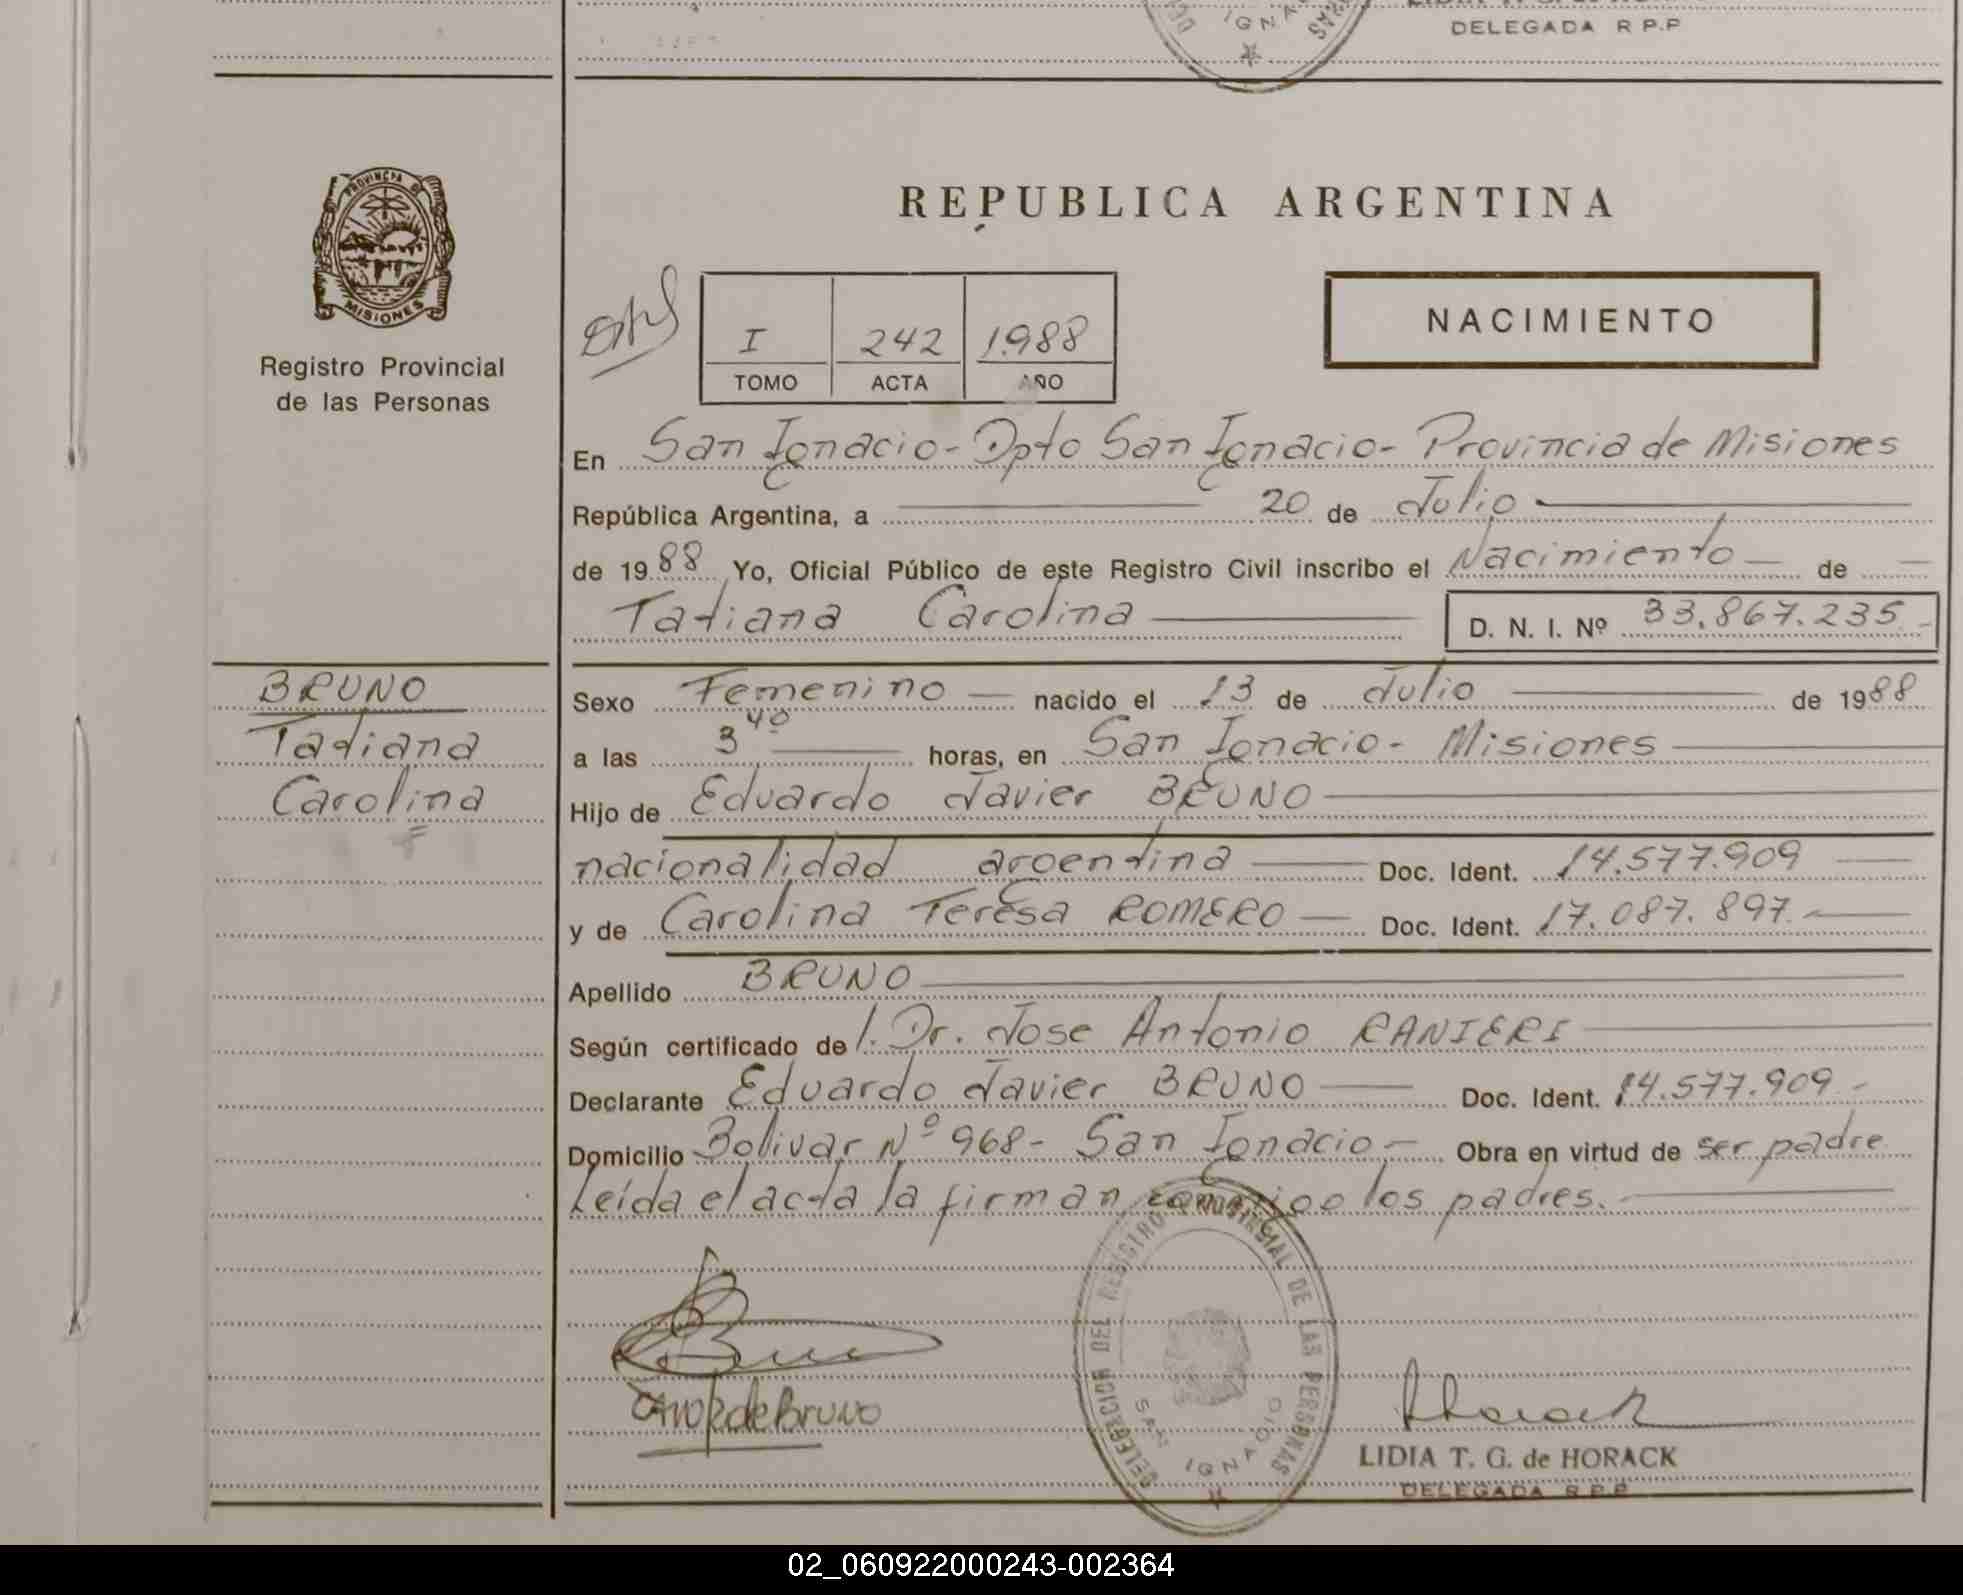 DELEGADA R P.P
IGNA
PROVINCIA DE
MISIONES
Registro Provincial
de las Personas
REPUBLICA ARGENTINA
I 242 1988
TOMO ACTA AÑO
NACIMIENTO
En San Ignacio - Dpto San Ignacio - Provincia de Misiones
República Argentina, a 20 de Julio
de 1988 Yo, Oficial Público de este Registro Civil inscribo el Nacimiento de
Tatiana Carolina D. N. I. Nº 33.867.235
BRUNO
Tatiana
Carolina
Sexo Femenino nacido el 13 de Julio de 1988
a las 3 40 horas, en San Ignacio - Misiones
Hijo de Eduardo Javier BRUNO
nacionalidad argentina Doc. Ident. 14.577.909
y de Carolina Teresa ROMERO Doc. Ident. 17.087.897
Apellido BRUNO
Según certificado de l. Dr. Jose Antonio RANIERI
Declarante Eduardo Javier BRUNO Doc. Ident. 14.577.909
Domicilio Bolivar Nº 968 - San Ignacio - Obra en virtud de ser padre
Leída el acta la firman conmigo los padres.
DELEGACION DEL REGISTRO PROVINCIAL DE LAS PERSONAS
SAN IGNACIO
de Bruno
Horack
LIDIA T. G. de HORACK
DELEGADA R.P.P
02_060922000243-002364